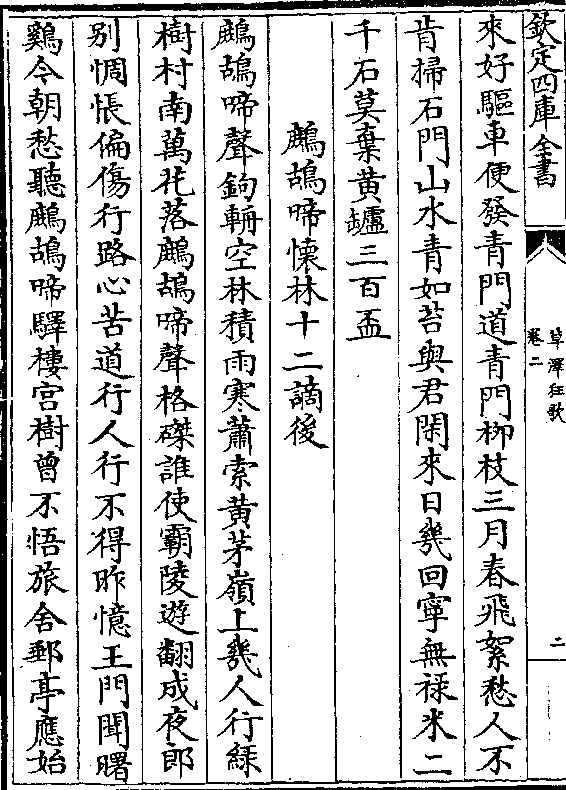 欽定四庫全書
草澤狂歌
卷二
二
來好驅車便發青門道青門栁枝三月春飛絮愁人不
肯掃石門山水青如苔與君閑來日幾回寜無禄米二
千石莫棄黄罏三百盃
鷓鴣啼懐林十二謫後
鷓鴣啼聲鉤輈空林積雨寒蕭索黄茅嶺上幾人行緑
樹村南萬花落鷓鴣啼聲格磔誰使霸陵遊翻成夜郎
别惆悵偏傷行路心苦道行人行不得昨憶王門聞曙
鷄今朝愁聽鷓鴣啼驛樓宫樹曾不悟旅舍郵亭應始